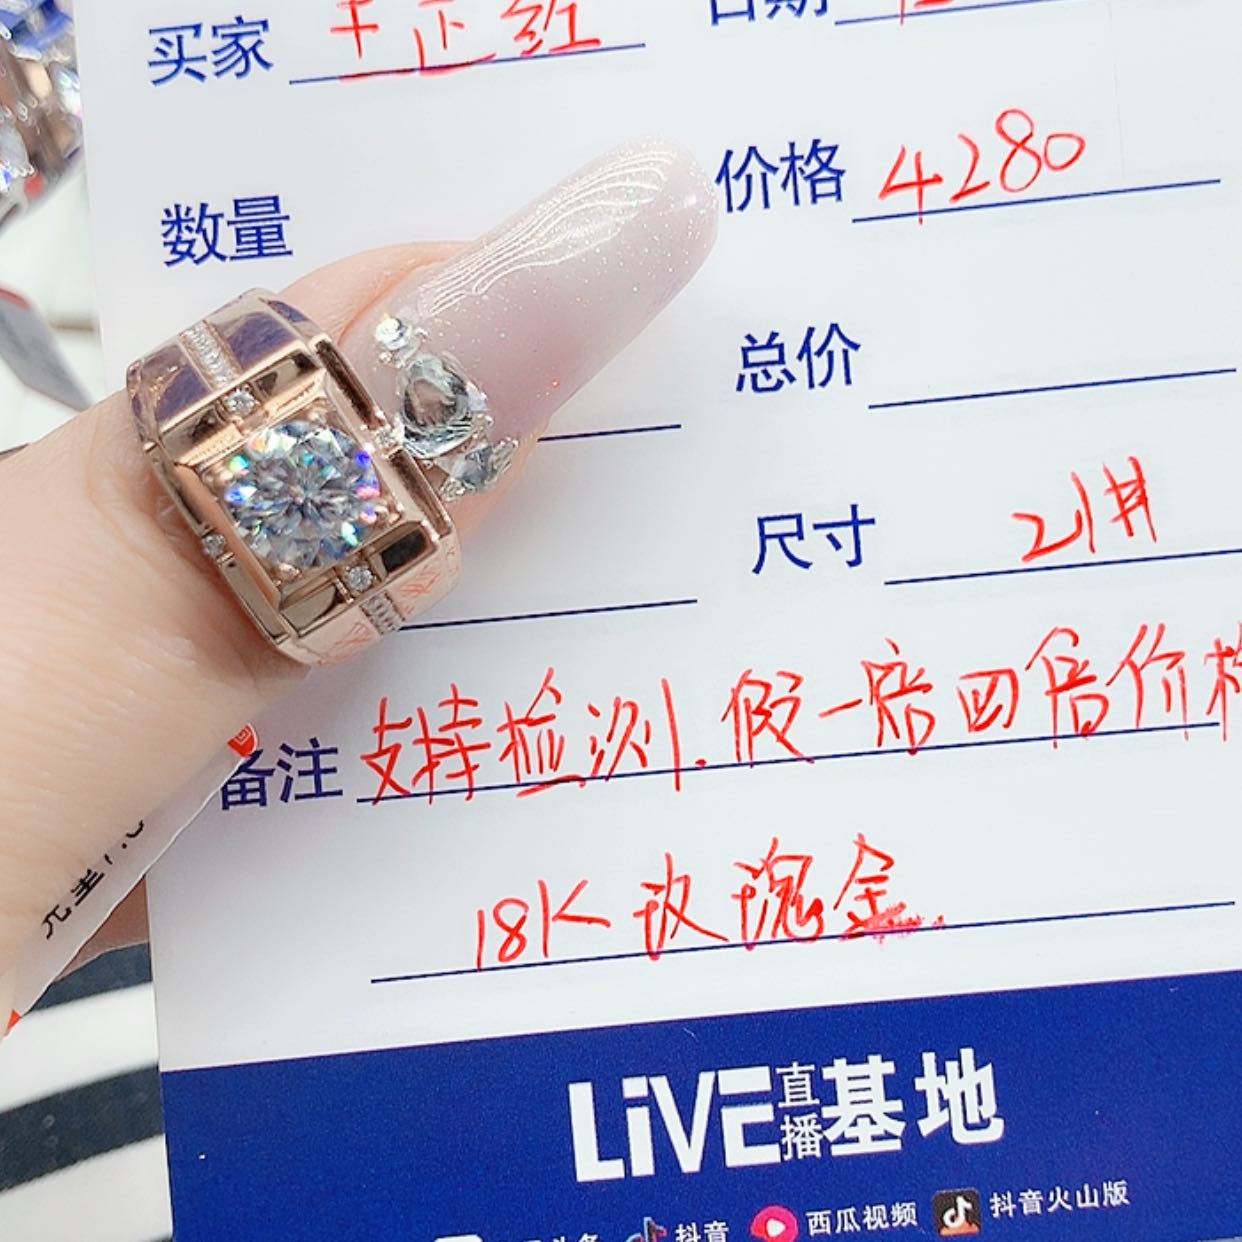 买家 王正红 日期
数量 价格 4280
总价
尺寸 21#
备注 支持检测.假一赔四倍价格
18K玫瑰金
LiVE直播基地
抖音 西瓜视频 抖音火山版